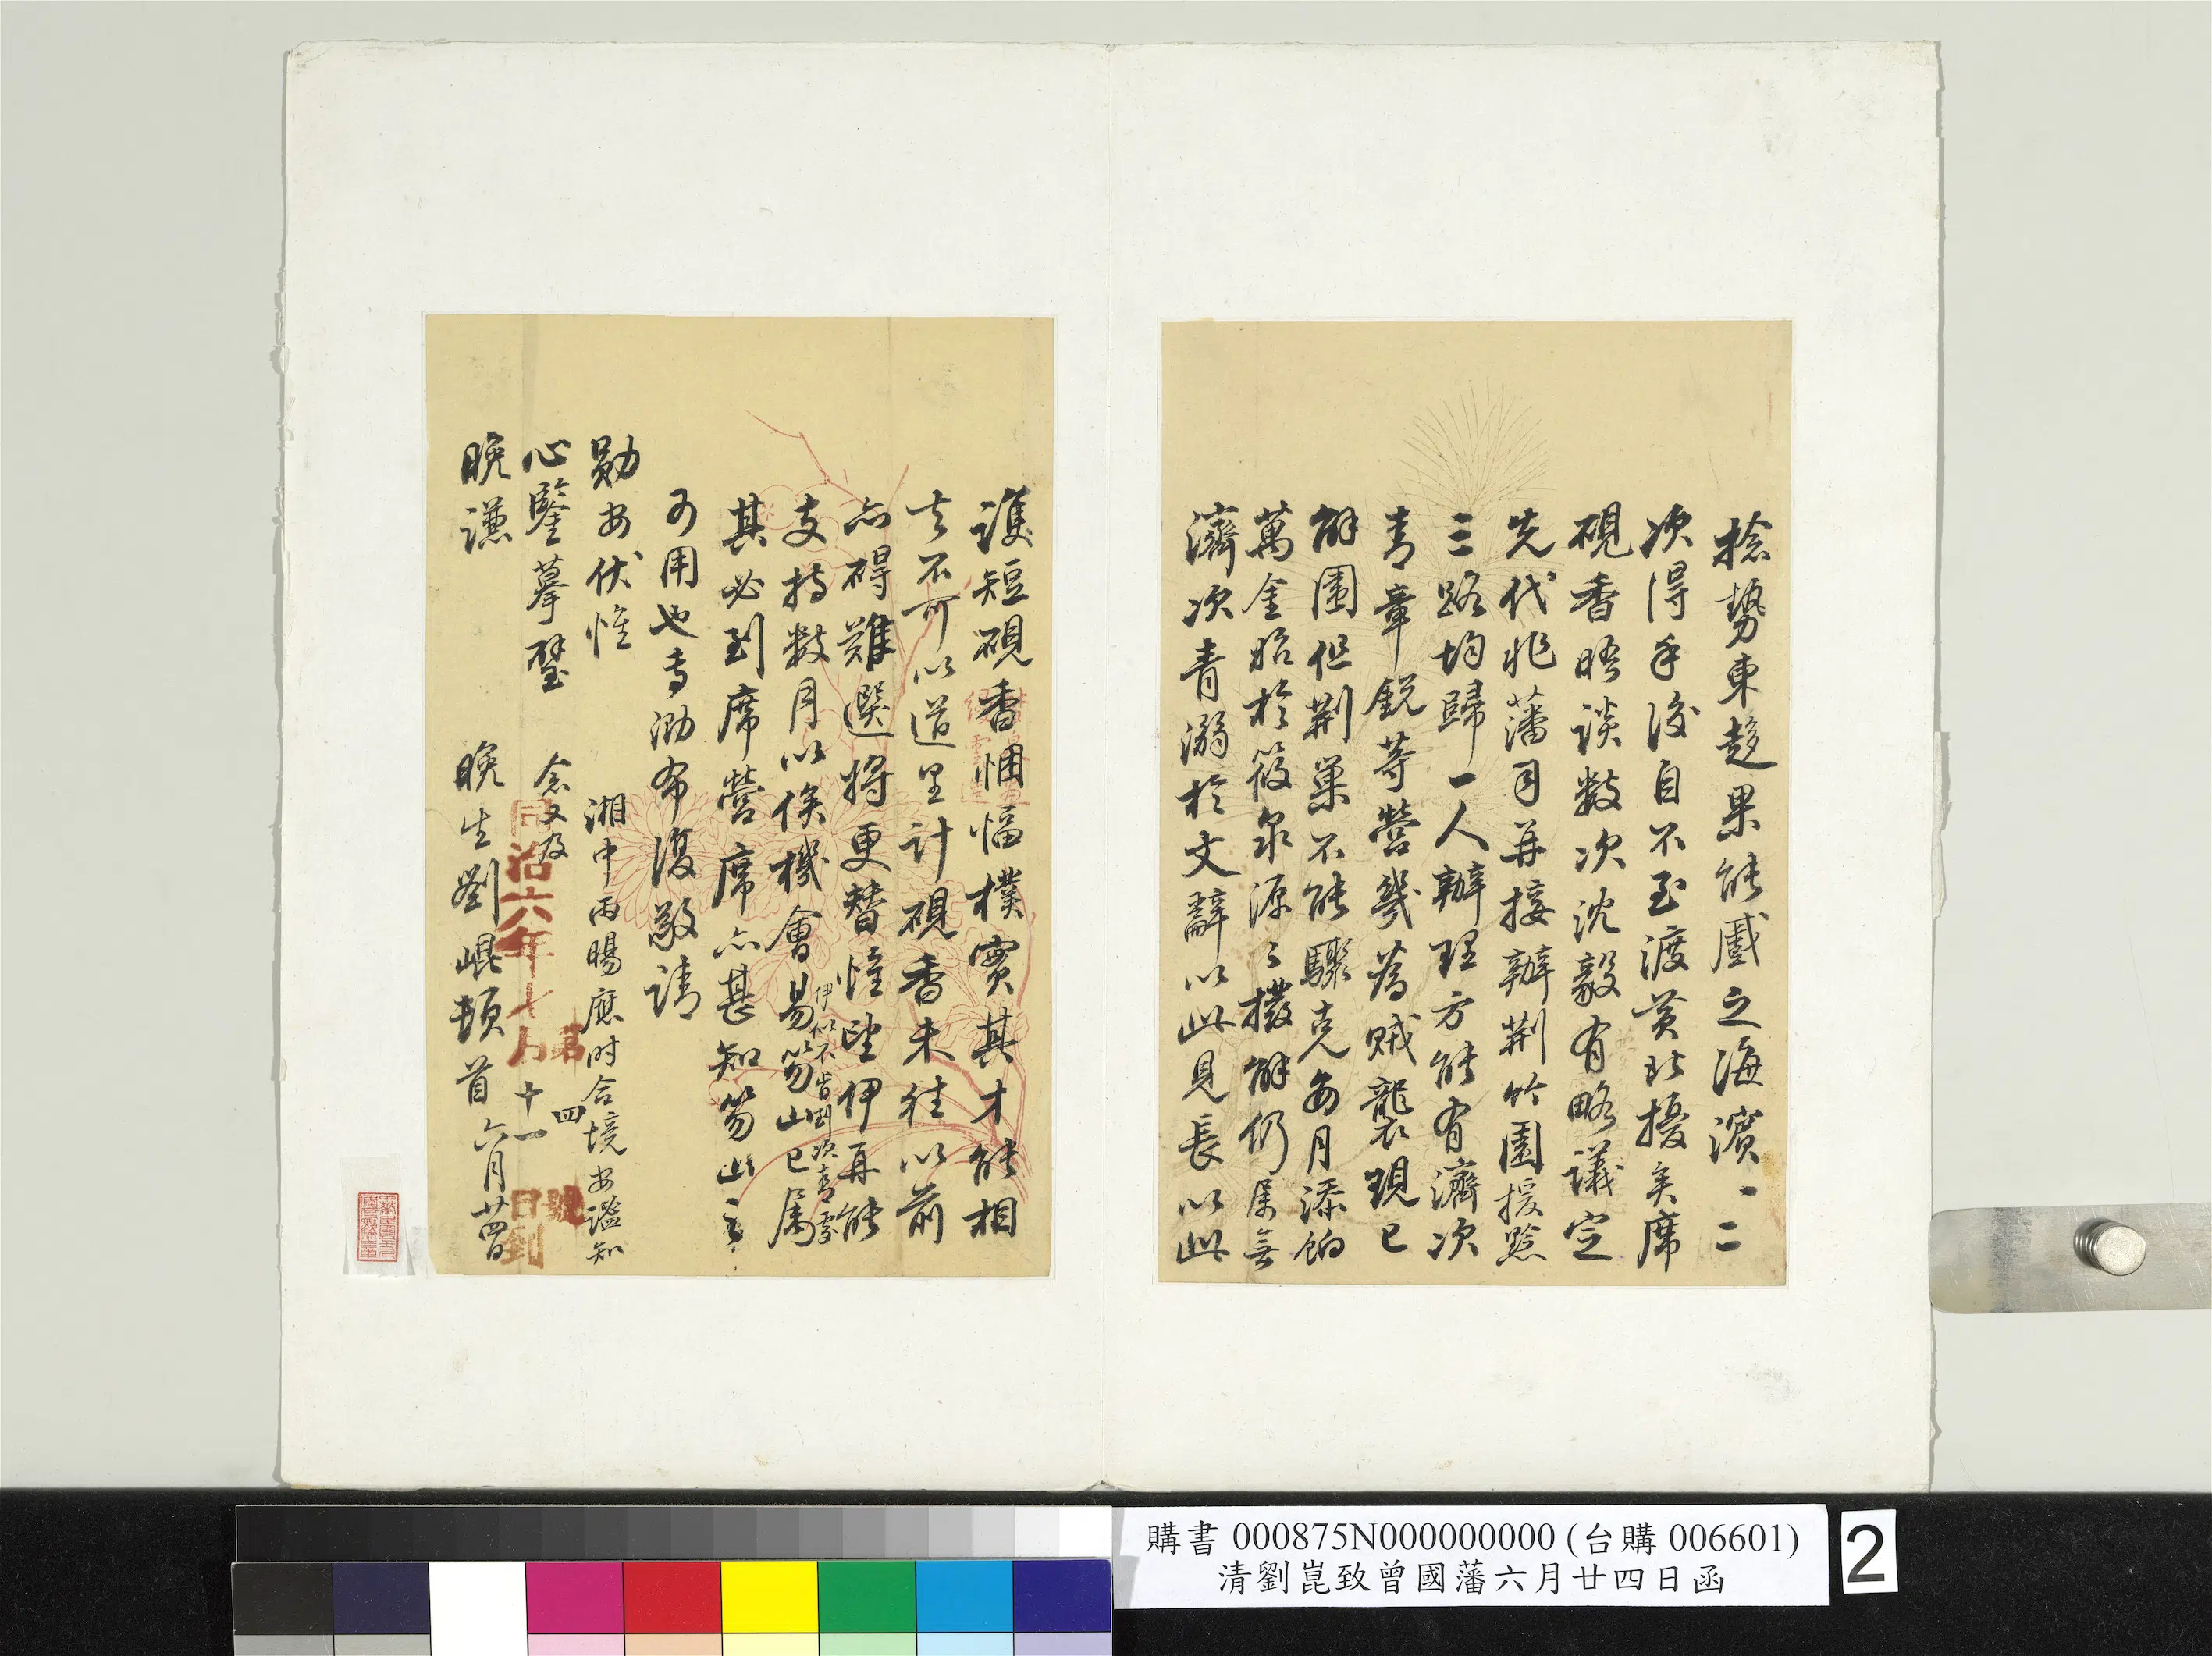 捻勢東趨果能蹙之海濱一二
次得手後自不至渡黃北擾矣席
硯香晤談數次沈毅有略議定
先代兆藩司并接辦荆竹園援黔
三路均歸一人辦理方能有濟次
青章銳等營幾為賊襲現已
解圍但荆巢不能驟克每月添餉
萬金始於筱泉源々撥解仍屬無
濟次青溺於文辭以此見長以此
護短硯香悃愊樸實其才能相
去不可以道里計硯香未往以前
亦碍難選將更替惟望伊再能
支持數月以俟機會易笏山已屬
伊似不肯到次青處
其必到席營席亦甚知笏山之
可用也專泐布復敬請
勛安伏惟
心鑒摹璧
湘中雨暘應时合境安謐知
念又及
晚謙
晚生劉崐頓首六月廿四日
同治六年七月十一日到
第四號
購書 000875N000000000 (台購 006601)
清劉崑致曾國藩六月廿四日函
2